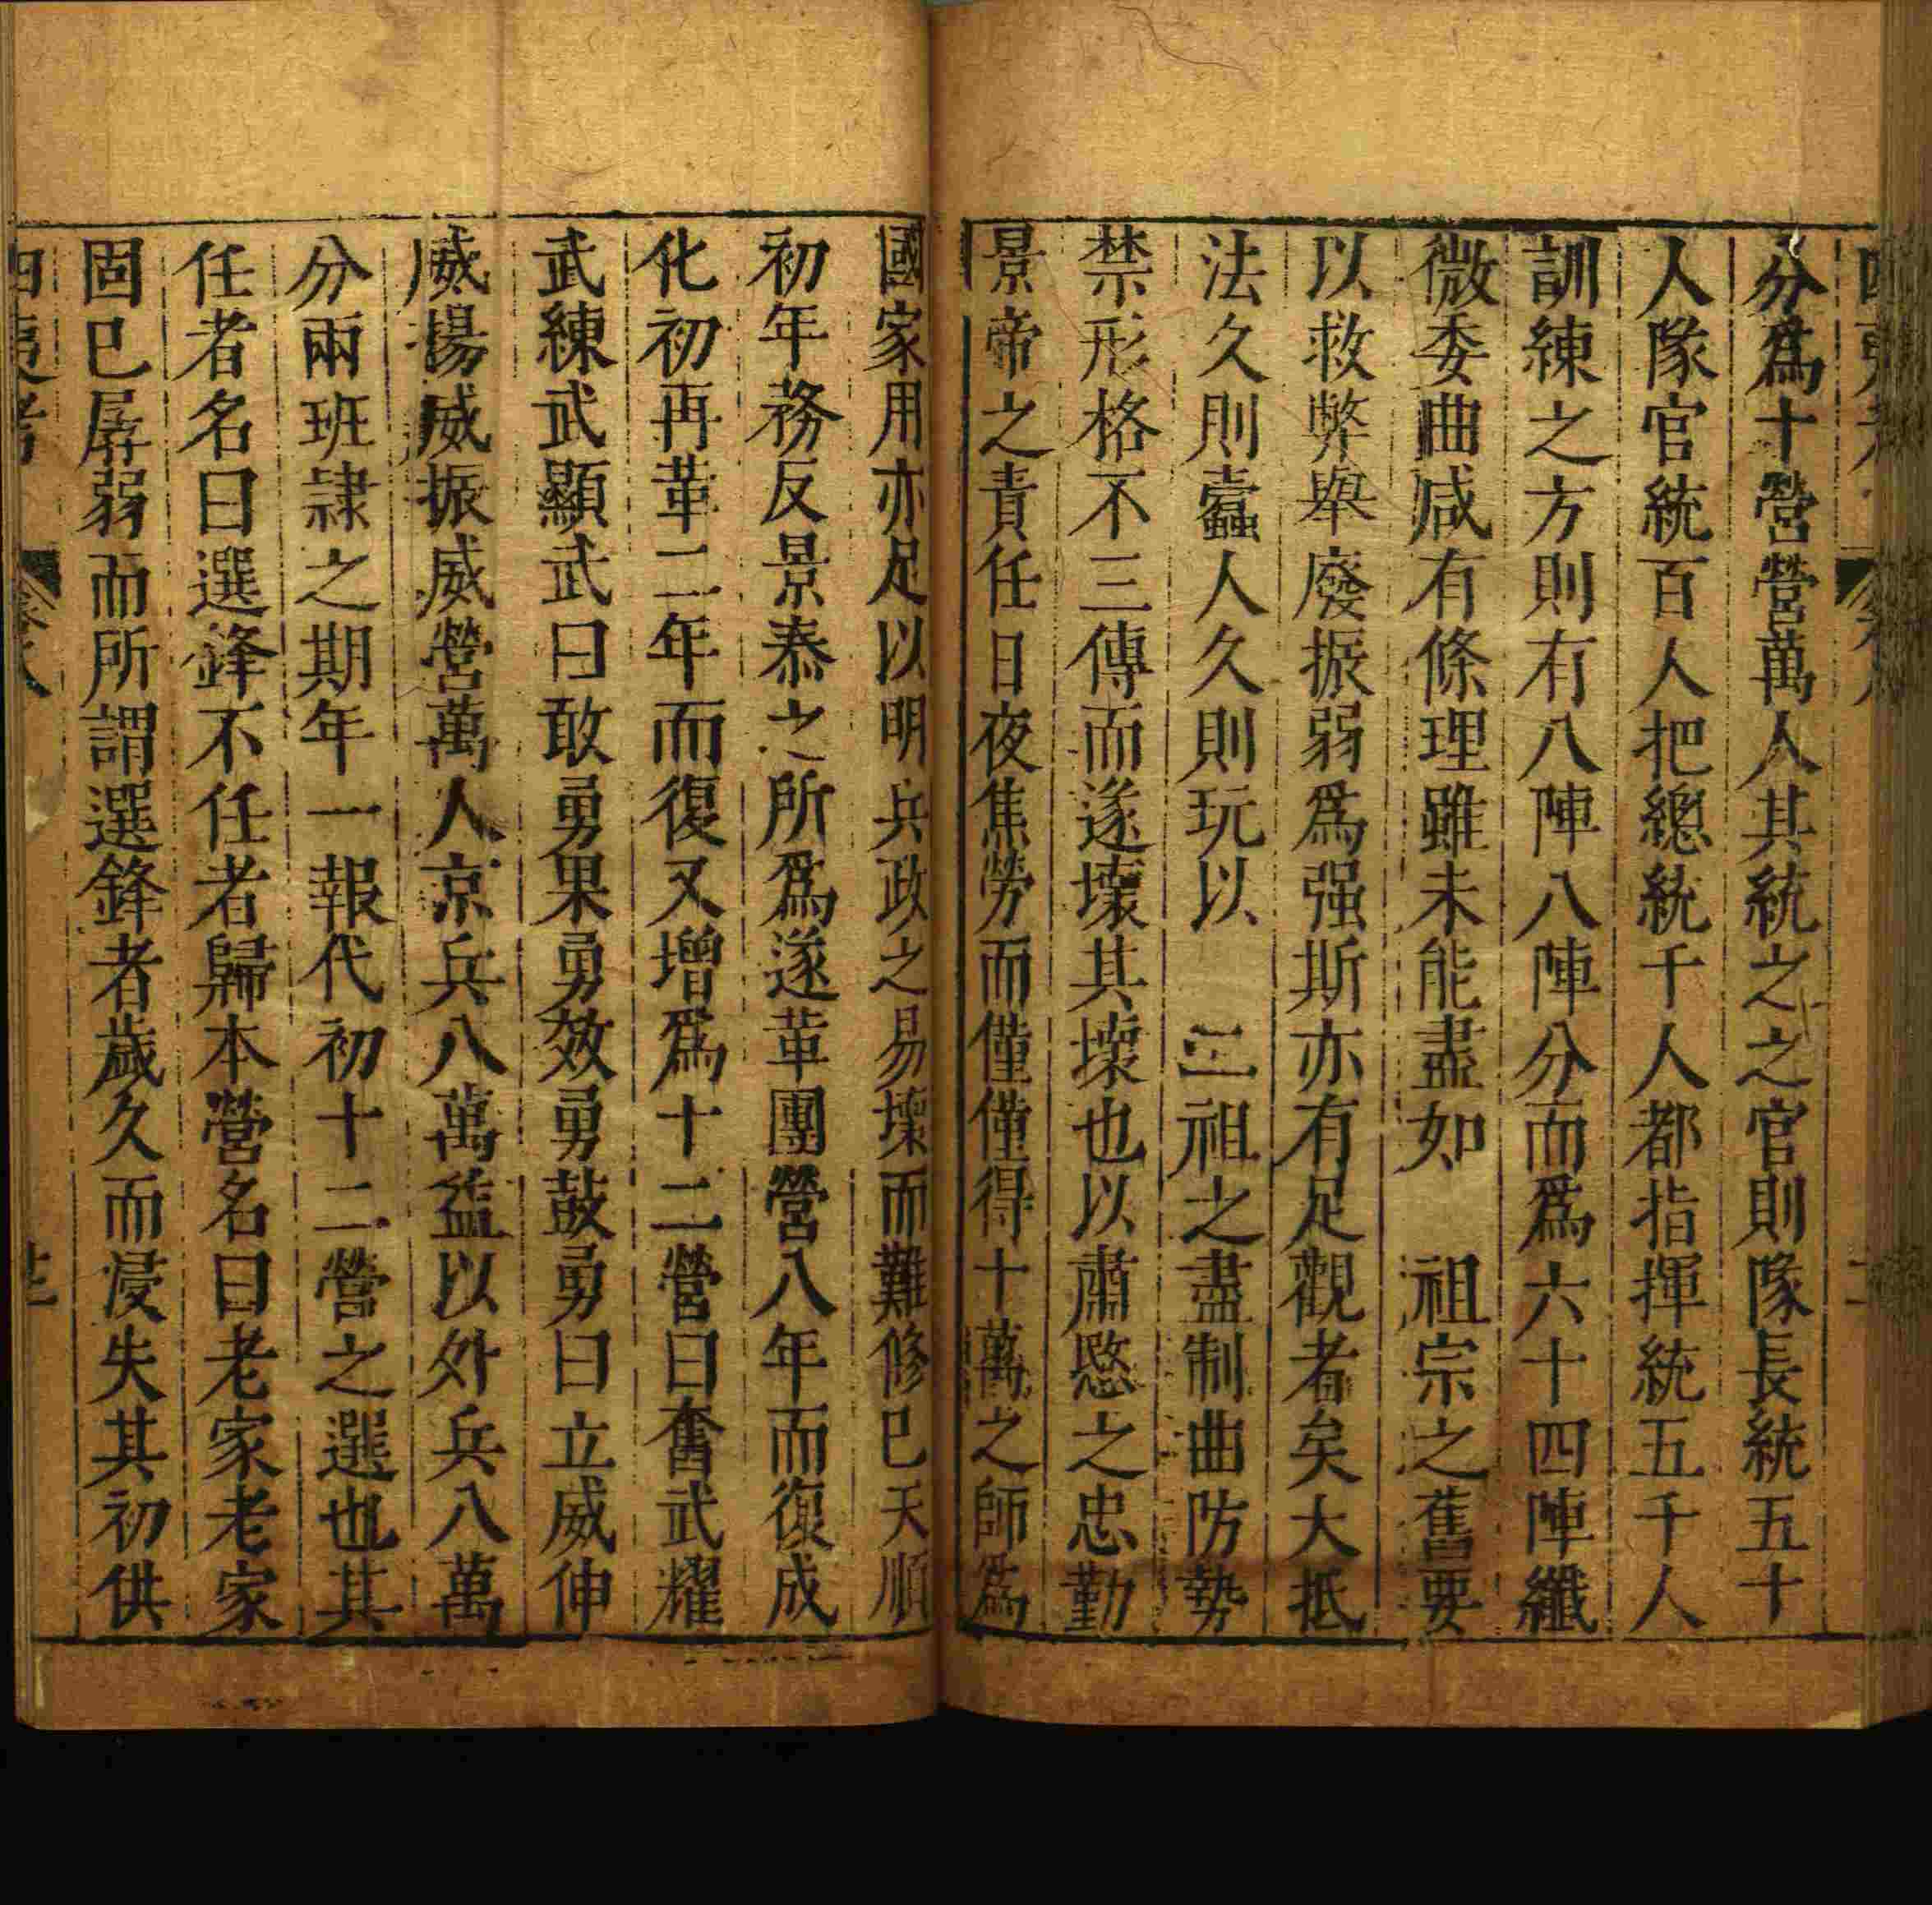 分爲十營營萬人其統之之官則隊長統五十
人隊官統百人把總統千人都指揮統五千人
訓練之方則有八陣八陣分而爲六十四陣纖
微委曲咸有條理雖未能盡如 祖宗之舊要
以救弊舉廢振弱爲强斯亦有足觀者矣大抵
法久則蠹人久則玩以 三祖之盡制曲防勢
禁形格不三傳而遂壞其壞也以肅愍之忠勤
景帝之責任日夜焦勞而僅僅得十萬之師爲
國家用亦足以明兵政之易壞而難修已天順
初年務反景泰之所爲遂革團營八年而復成
化初再革二年而復又增爲十二營曰奮武耀
武練武顯武曰敢勇果勇效勇鼓勇曰立威伸
威揚威振威營萬人京兵八萬益以外兵八萬
分兩班隷之期年一報代初十二營之選也其
任者名曰選鋒不任者歸本營名曰老家老家
固已孱弱而所謂選鋒者歲久而浸失其初供
四夷考 卷八 廿